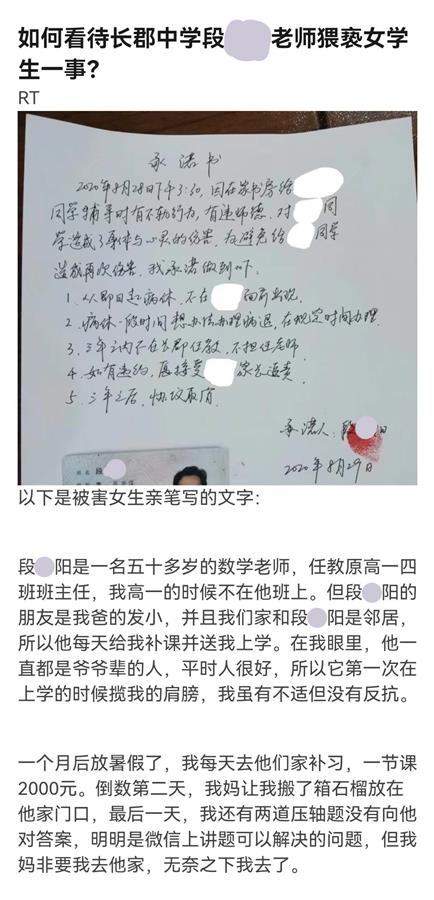 如何看待长郡中学段 老师猥亵女学
生一事？
RT
承诺书
2020年8月28日下午3:30，因在家书房给
同学辅导时有不轨行为，有违师德，对 同
学造成了身体与心灵的伤害，为避免给 同学
造成再次伤害，我承诺做到以下：
1、从即日起病休，不在 面前出现。
2、病休一段时间想办法办理病退，在规定时间办理.
3、三年之内不在长郡任教，不担任老师
4、如有违约，愿接受 家长追责.
5、三年之后，协议取消.
承诺人：段 阳
2020年8月29日
姓名 段
以下是被害女生亲笔写的文字：
段 阳是一名五十多岁的数学老师，任教原高一四
班班主任，我高一的时候不在他班上。但段 阳的
朋友是我爸的发小，并且我们家和段 阳是邻居，
所以他每天给我补课并送我上学。在我眼里，他一
直都是爷爷辈的人，平时人很好，所以它第一次在
上学的时候揽我的肩膀，我虽有不适但没有反抗。
一个月后放暑假了，我每天去他们家补习，一节课
2000元。倒数第二天，我妈让我搬了箱石榴放在
他家门口，最后一天，我还有两道压轴题没有向他
对答案，明明是微信上讲题可以解决的问题，但我
妈非要我去他家，无奈之下我去了。